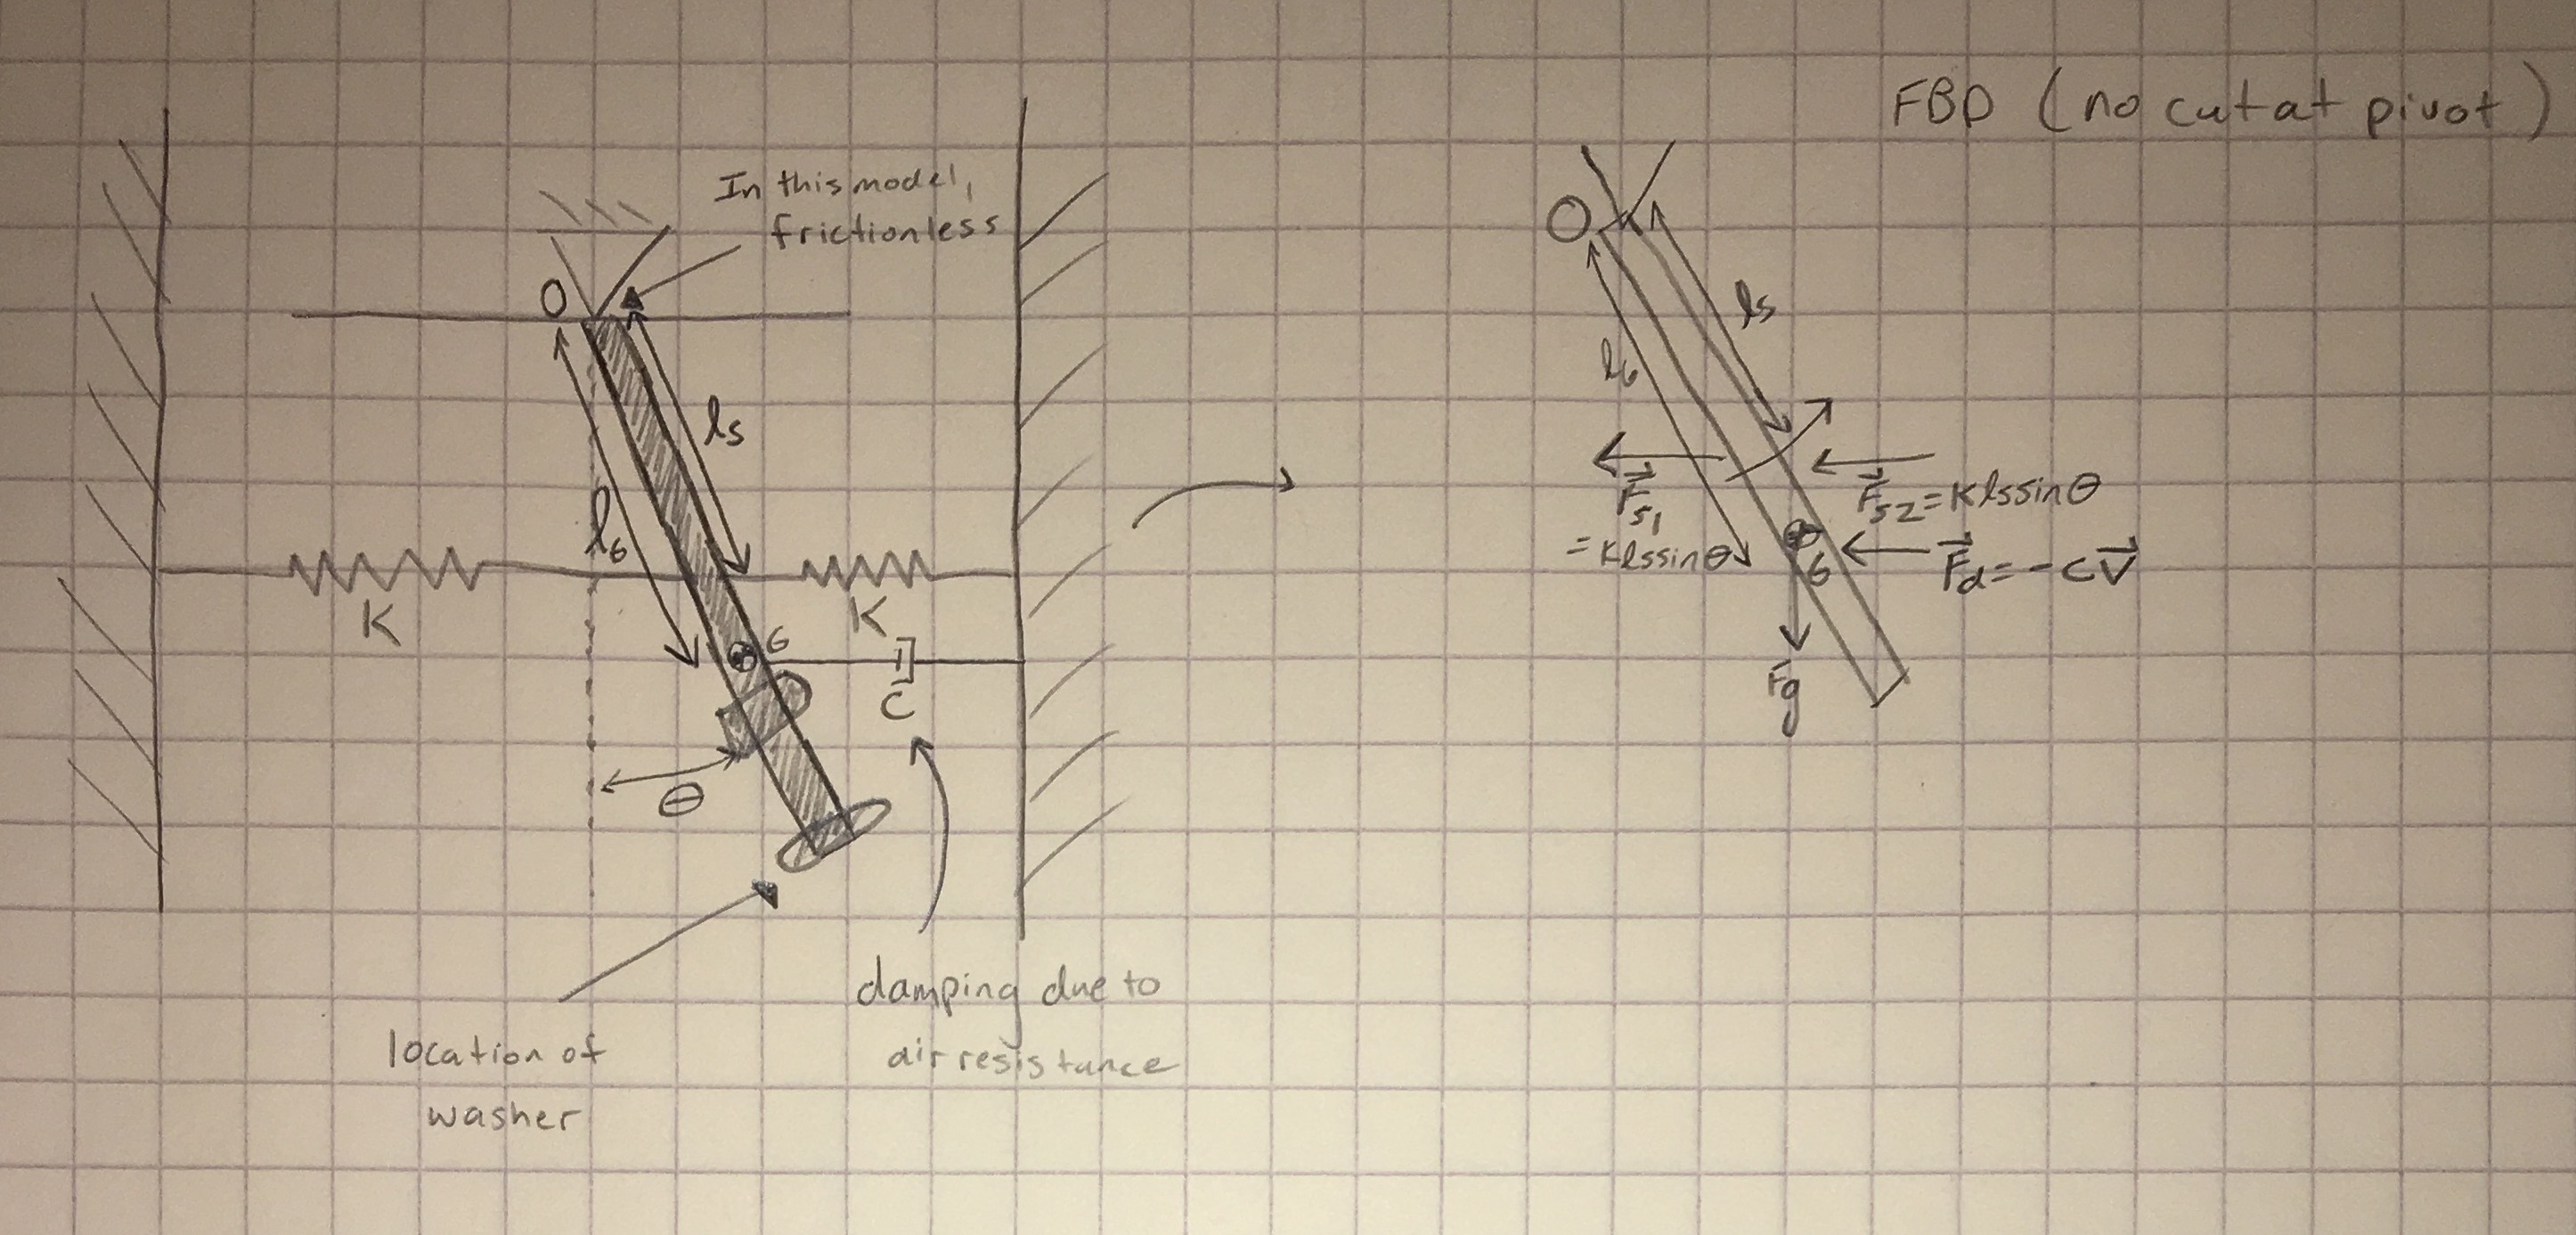 FBD (no cut at pivot)
In this model,
frictionless
O
ls
lG
K
K
G
C
θ
location of
washer
damping due to
air resistance
O
ls
lG
Fs1
= Klssinθ
Fs2 = Klssinθ
G
Fd = -cv
Fg